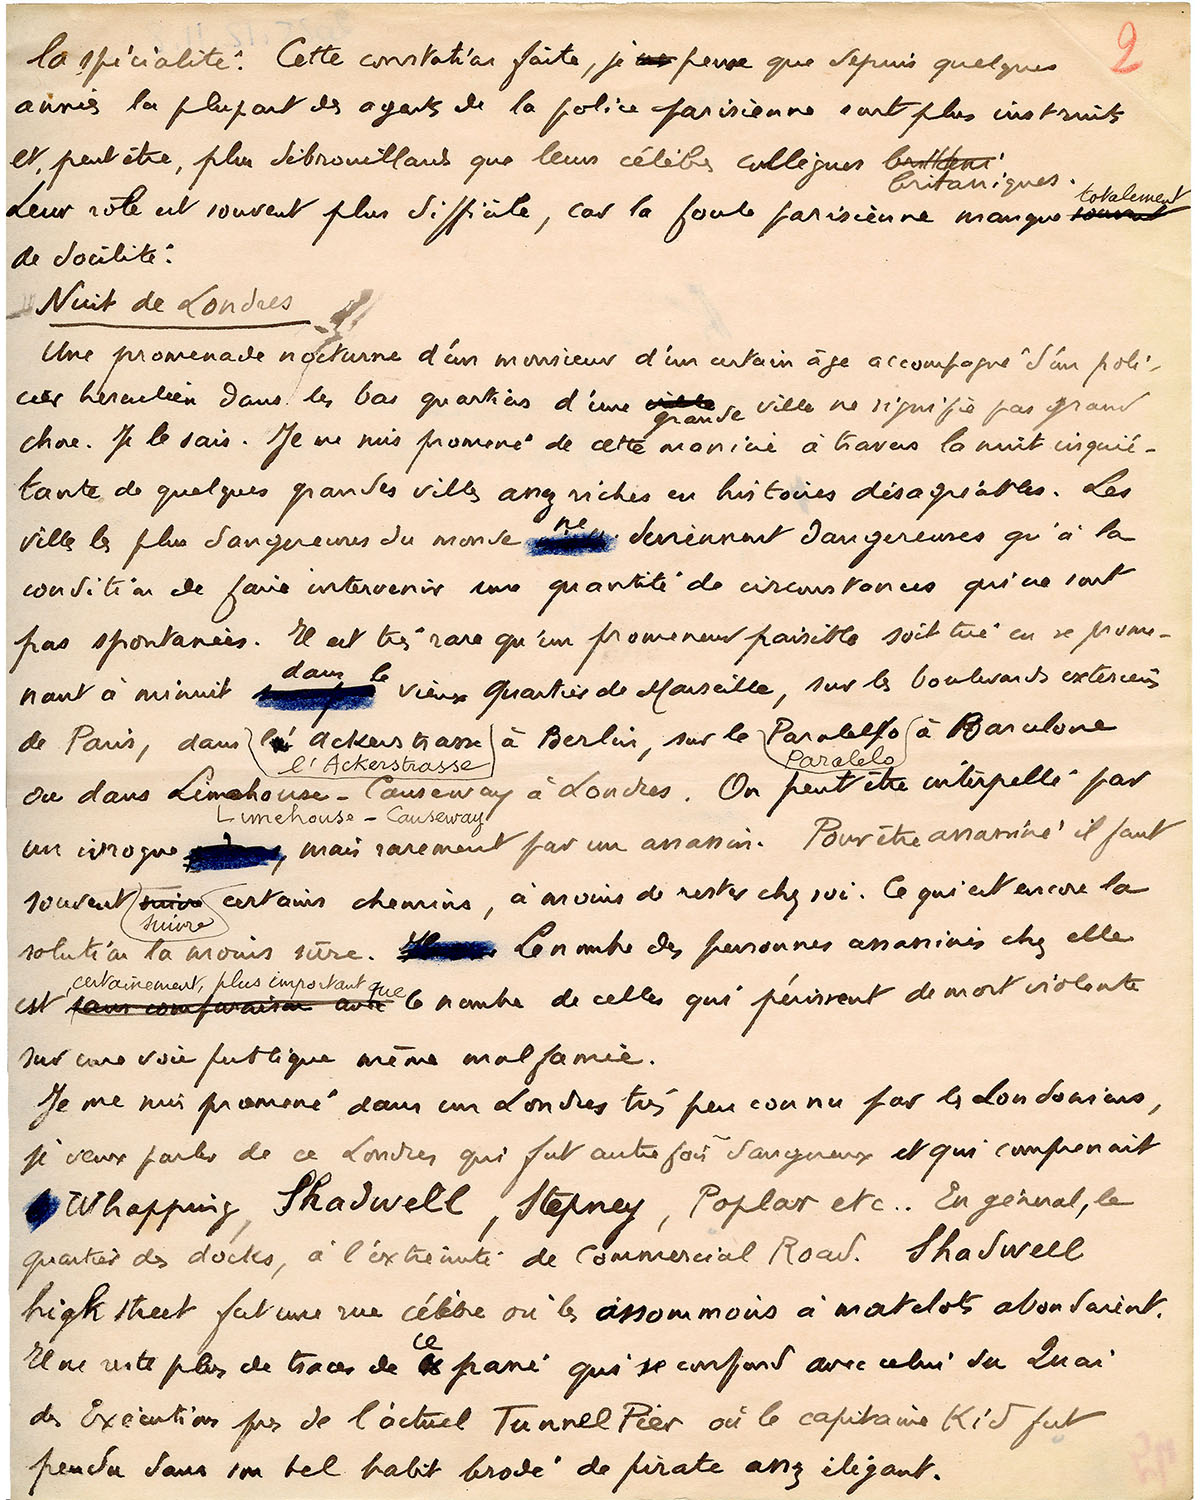 2
la spécialité. Cette constatation faite, je pense que depuis quelques
années la plupart des agents de la police parisienne sont plus instruits
et, peut être, plus débrouillards que leurs célèbres collègues
britaniques.
totalement
Leur rôle est souvent plus difficile, car la foule parisienne manque souvent
de docilité.
Nuit de Londres
Une promenade nocturne d'un monsieur d'un certain âge accompagné d'un poli-
cier herculéen dans les bas quartiers d'une ville ne signifie pas grand
grande
chose. Je le sais. Je me suis promené de cette manière à travers la nuit inquié-
tante de quelques grandes villes assez riches en histoires désagréables. Les
ne
villes les plus dangereuses du monde deviennent dangereuses qu'à la
condition de faire intervenir une quantité de circonstances qui ne sont
pas spontanées. Il est très rare qu'un promeneur paisible soit tué en se prome-
dans le
nant à minuit vieux quartier de Marseille, sur les boulevards extérieurs
de Paris, dans l' Ackerstrasse à Berlin, sur le Paralello à Barcelone
l'Ackerstrasse Paralelo
ou dans Limehouse-Causeway à Londres. On peut être interpellé par
Limehouse-Causeway
un ivrogne, mais rarement par un assassin. Pour être assassiné il faut
souvent suivre certains chemins, à moins de rester chez soi. Ce qui est encore la
suivre
solution la moins sûre. Le nombre des personnes assassinées chez elle
certainement, plus important que
est sans comparaison avec le nombre de celles qui périssent de mort violente
sur une voie publique même mal famée.
Je me suis promené dans un Londres très peu connu par les Londoniens,
je veux parler de ce Londres qui fut autrefois dangereux et qui comprenait
Whapping, Shadwell, Stepney, Poplar etc.. En général, le
quartier des docks, à l'éxtrémité de Commercial Road. Shadwell
high street fut une rue célèbre où les assommoirs à matelots abondaient.
ce
Il ne reste plus de traces de passé qui se confond avec celui du Quai
des Exécutions près de l'actuel Tunnel Pier où le capitaine Kid fut
pendu dans son bel habit brodé de pirate assez élégant.